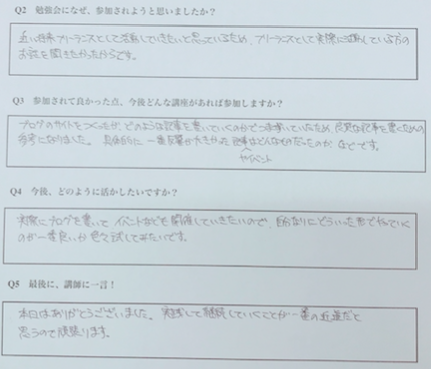 Q2 勉強会になぜ、参加されようと思いましたか？
近い将来フリーランスとして活動していきたいと思っているため、フリーランスとして実際に活動している方の
お話を聞きたかったからです。
Q3 参加されて良かった点、今後どんな講座があれば参加しますか？
ブログのサイトをつくったが、どのような記事を書いていくのかでつまずいていたため、記事を書くための
参考になりました。具体的に一番反響が大きかった記事はどんなものだったのか などです。
やイベント
Q4 今後、どのように活かしたいですか？
実際にブログを書いて イベントなどを開催していきたいので、自分なりにどういった形でやっていく
のが一番良いか色々試してみたいです。
Q5 最後に、講師に一言！
本日はありがとうございました。 継続していくことが一番の近道だと
思うので頑張ります。